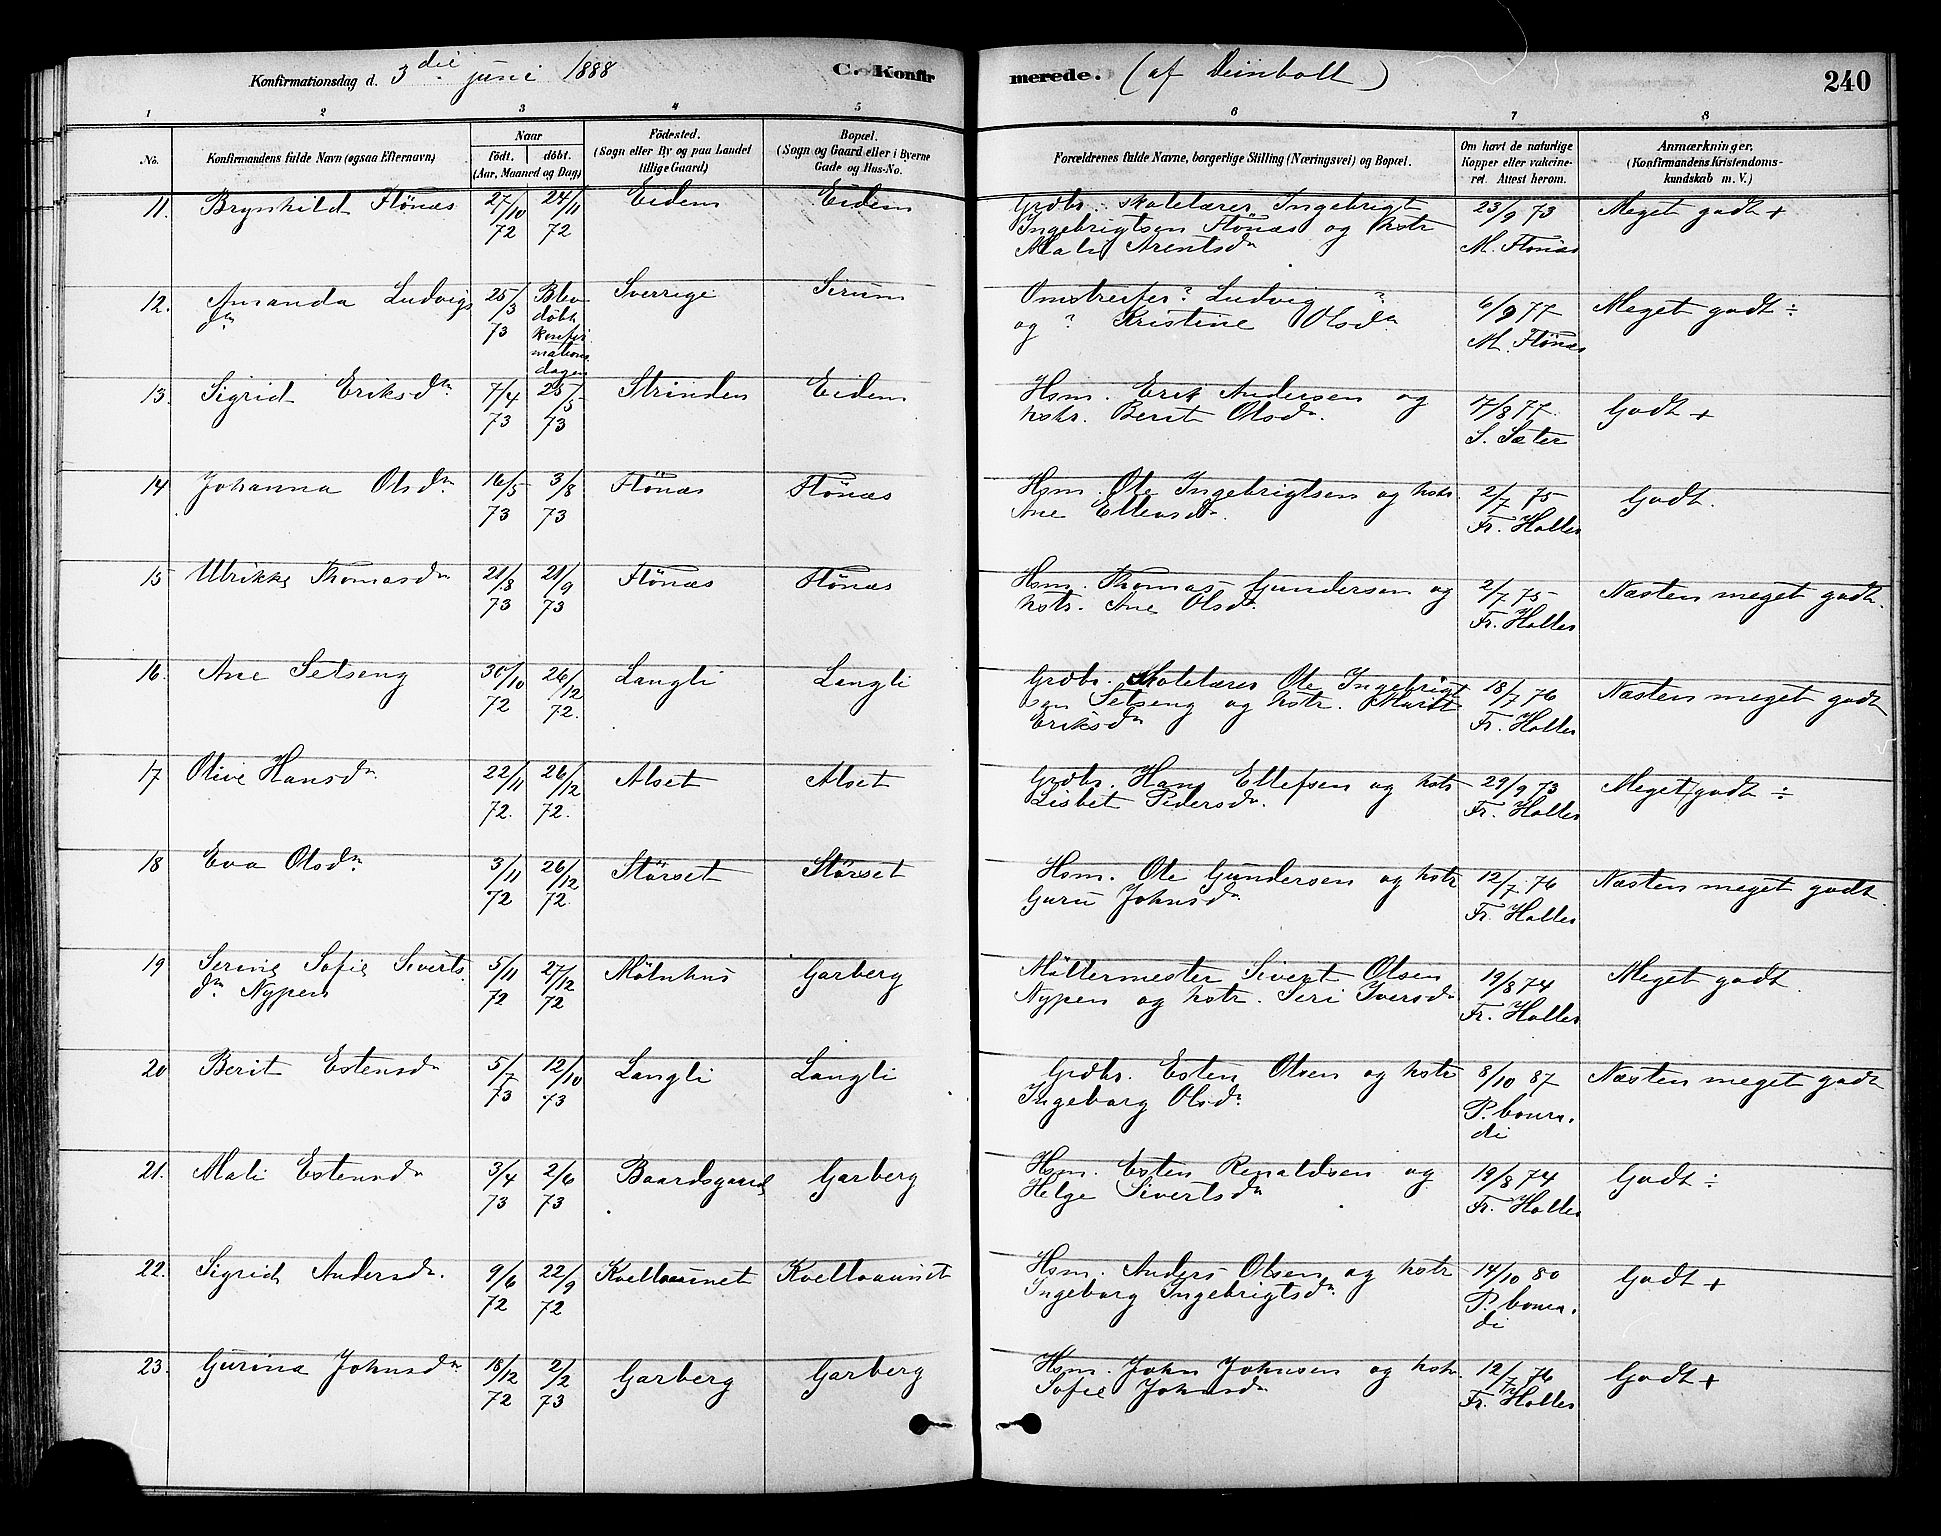 Konfirmationsdag d. 3die juni 1888
C. Konfirmerede. (af Deinboll)
240
1 2 3 4 5 6 7 8
No.
Konfirmandens fulde Navn (ogsaa Efternavn)
Naar
födt. döbt.
(Aar, Maaned og Dag)
Födested.
(Sogn eller By og paa Landet
tillige Gaard)
Bopæl.
(Sogn og Gaard eller i Byerne
Gade og Hus-No.
Forældrenes fulde Navne, borgerlige Stilling (Næringsvei) og Bopæl.
Om havt de naturlige
Kopper eller vakcine-
ret. Attest herom.
Anmærkninger,
(Konfirmandens Kristendoms-
kundskab m. V.)
11. Brynhild Flönæs 27/10 72 24/11 72 Eidem Eidem
Grdbr. skolelærer Ingebrigt
Ingebrigtsen Flönæs og hstr
Mali Arentsdr
23/9 73
M. Flönæs
Meget godt +
12. Amanda Ludvigs
dr
25/3 73
Blev
döbt
konfir
mations
dagen
Sverrige Serum
Omstreifer? Ludvig ?
og ? Kristine Olsdr
6/9 77
M. Flönæs
Meget godt ÷
13. Sigrid Eriksdr 7/4 73 25/5 73 Strinden Eidem
Hsm. Erik Andersen og
hstr. Berit Olsdr.
7/8 77.
S. Sæter
Godt +
14 Johanna Olsdr. 16/5 73 3/8 73 Flönæs Flönæs
Hsm. Ole Ingebrigtsen og hstr
Ane Ellevsdr.
2/7 75
Fr. Halles
Godt.
15 Ulrikke Thomasdr 21/8 73 21/9 73 Flönæs Flönæs
Hsm. Thomas Gundersen og
hstr. Ane Olsdr
2/7 75
Fr. Halles
Næsten meget godt.
16. Ane Setseng 30/10 72 26/12 72. Langli Langli
Grdbr. Skolelærer Ole Ingebrigt
sen Setseng og hstr. Marit
Eriksdr
18/7 76
Fr. Halles
Næsten meget godt
17 Olive Hansdr. 22/11 72. 26/12 72. Alset Alset
Grdbr. Hans Ellefsen og hstr
Lisbet Pedersdr.
29/9 73
Fr. Halles
Meget godt ÷
18 Eva Olsdr. 3/11 72 26/12 72. Störset Störset
Hsm. Ole Gundersen og hstr
Guru Johnsdr
12/7 76
Fr. Halles
Næsten meget godt.
19 Serine Sofie Siverts
dr. Nypen
5/11 72 27/12 72 Mölnhus Garberg
Möllermester Sivert Olsen
Nypen og hstr. Seri Iversdr
19/8 74
Fr. Halles
Meget godt.
20 Berit Estensdr 5/7 73 12/10 73 Langli Langli
Grdbr. Esten Olsen og hstr
Ingeborg Olsdr.
8/10 87
P. boura.
di
Næsten meget godt
21. Mali Estensdr 3/4 73 2/6 73 Baardsgaard Garberg
Hsm. Esten Renaldsen og
Helge Sivertsdr
19/8 74
Fr. Halles
Godt ÷
22. Sigrid Andersdr. 9/6 72 22/9 72 Kvellaunet Kvellvaunet
Hsm. Anders Olsen og hstr
Ingeborg Ingebrigtsdr
14/10 80
P. boura.
di
Godt +
23. Gurina Johnsdr 18/12 72 2/2 73 Garberg Garberg
Hsm. John Johnsen og hstr.
Sofie Johnsdr
12/7 76
Fr. Halles
Godt +